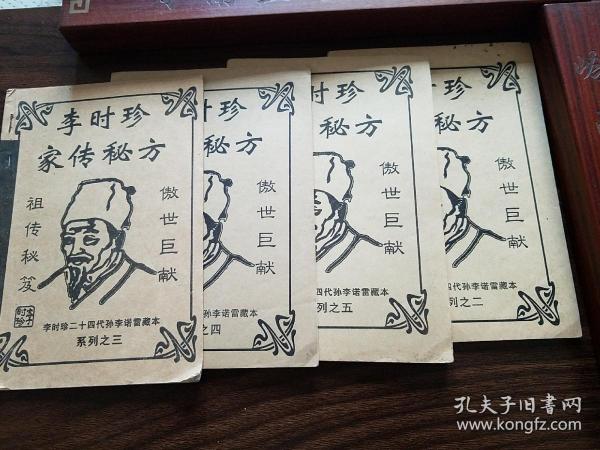 李时珍
家传秘方
祖传秘笈
傲世巨献
李时珍二十四代孙李诺雷藏本
系列之三
珍
秘方
傲世巨献
四代孙李诺雷藏本
之四
时珍
秘方
傲世巨献
四代孙李诺雷藏本
列之五
珍
秘方
傲世巨献
四代孙李诺雷藏本
列之二
孔夫子旧书网
www.kongfz.com